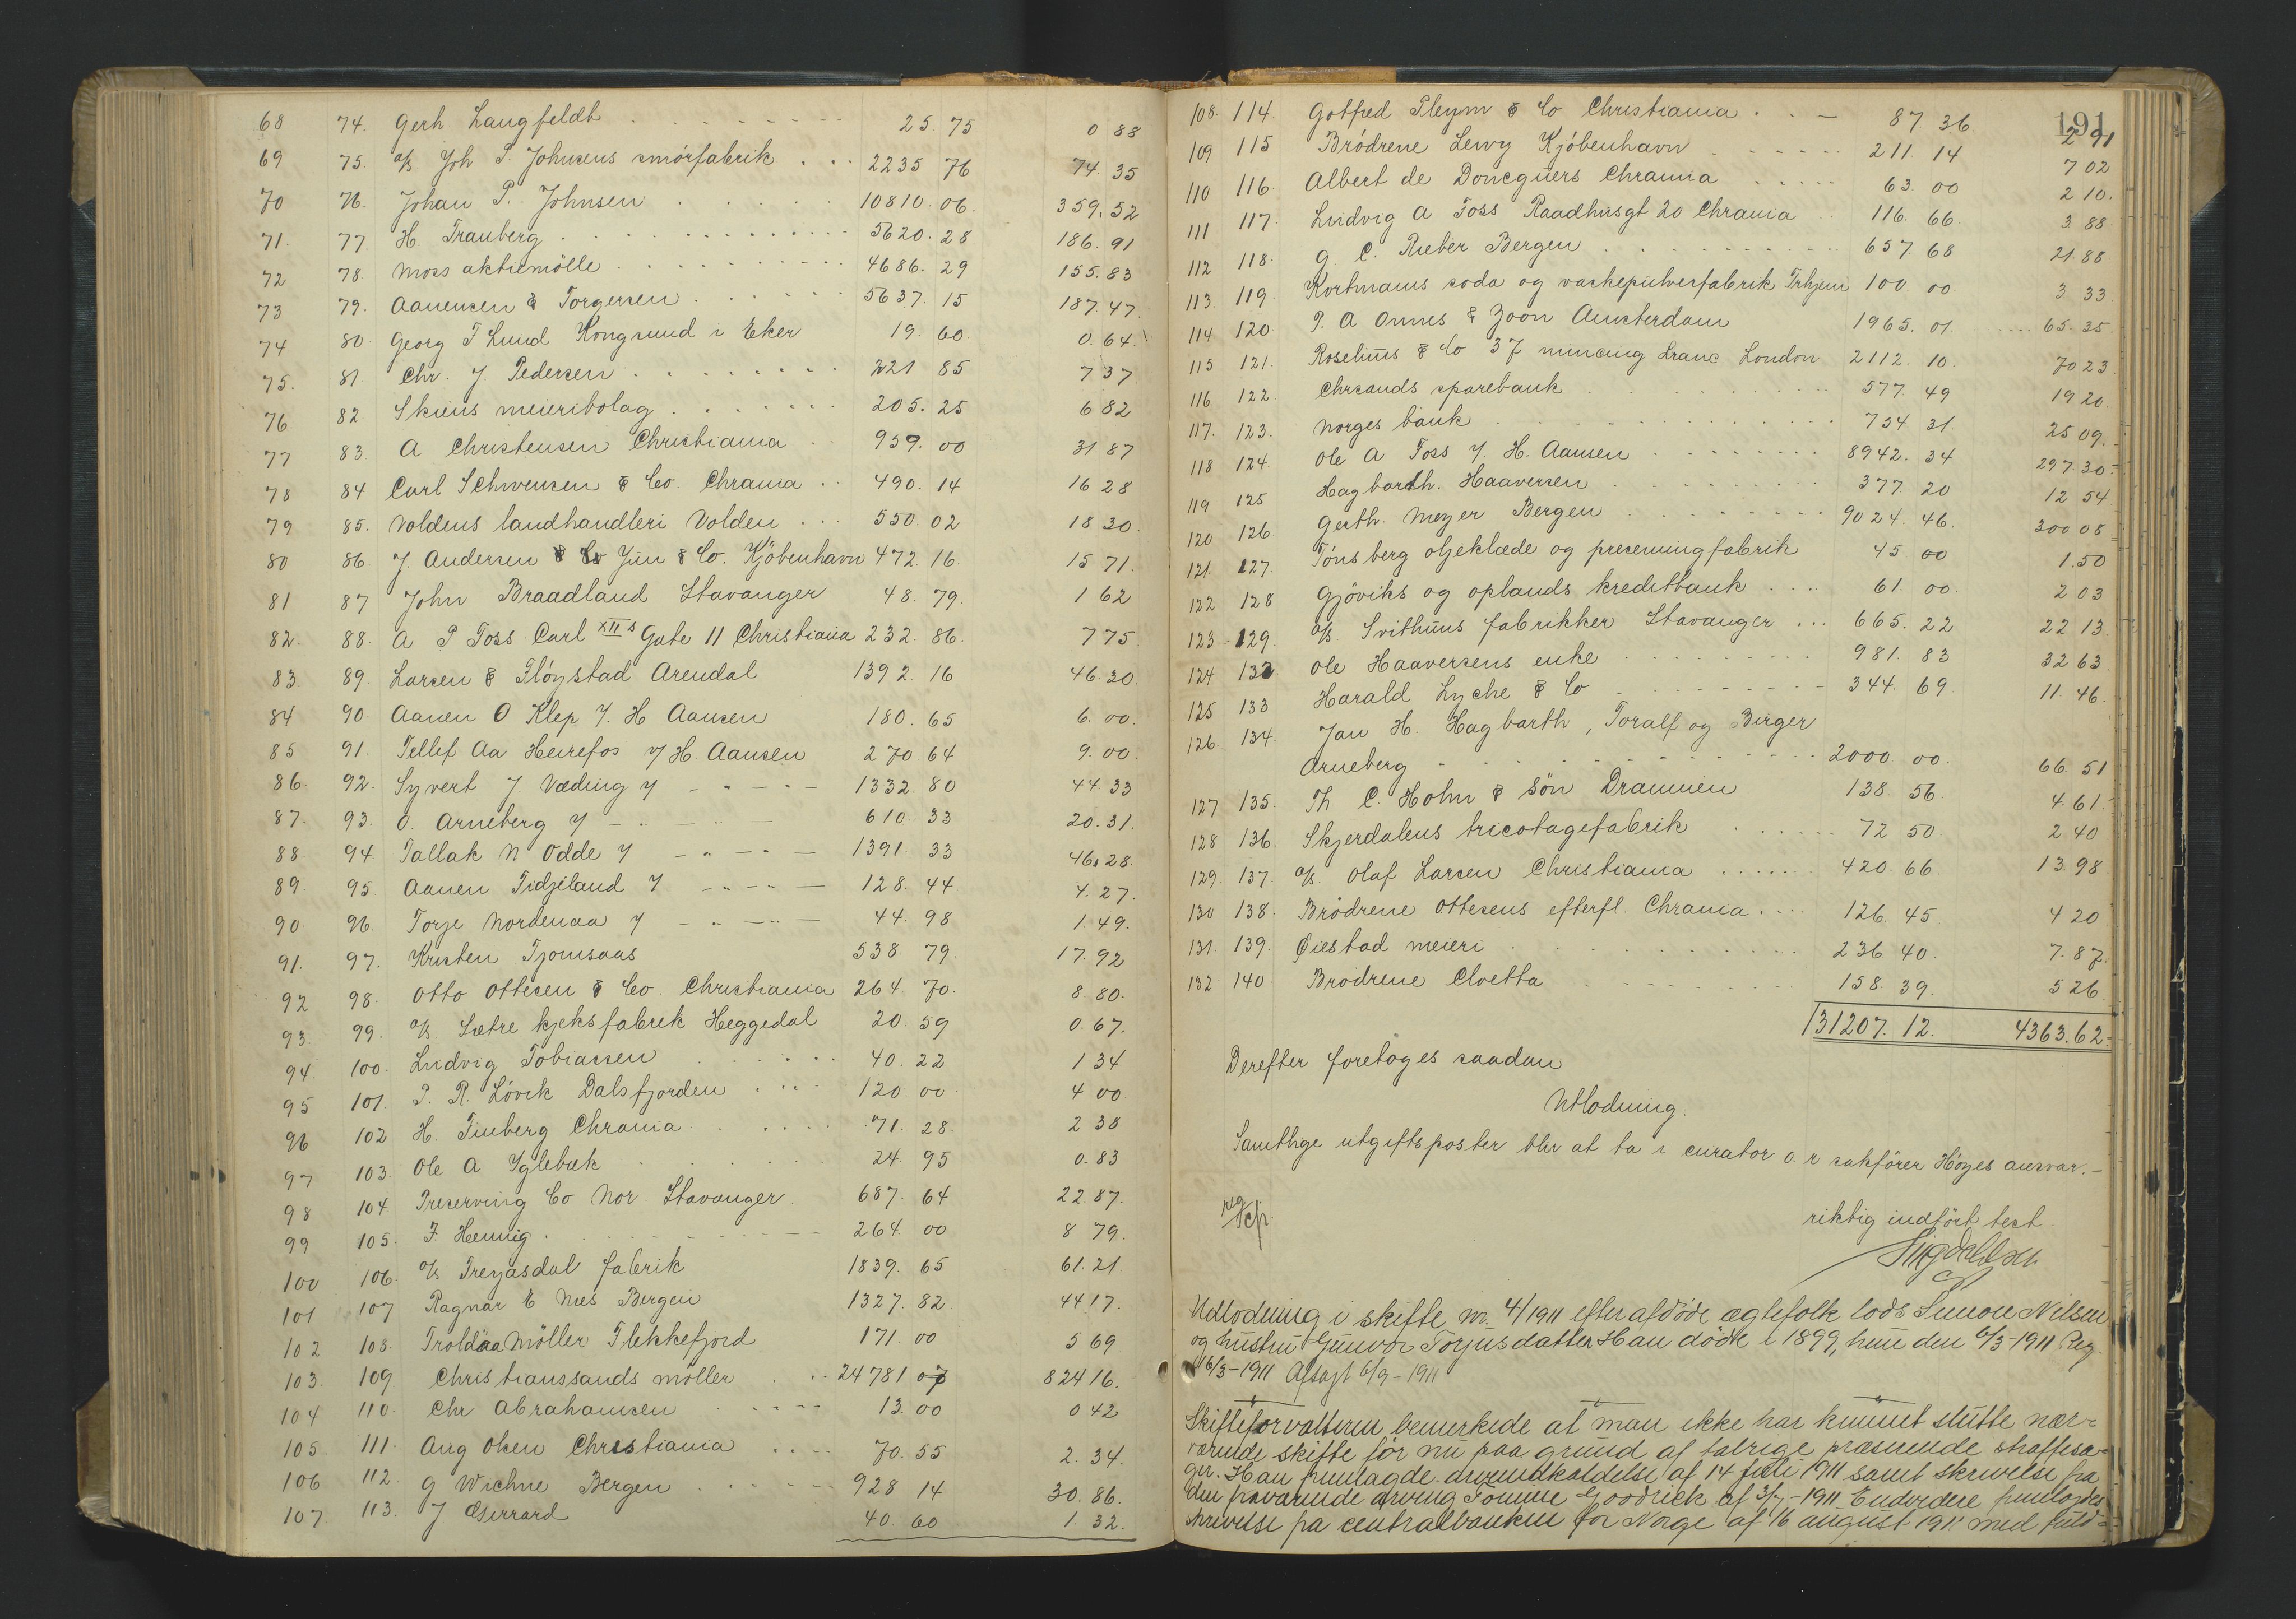 68 74. Gerh. Langfeldt 25 75 0 88
69 75. A/S Joh P. Johnsens smörfabrik 2235 76 74 35
70 76. Johan P. Johnsen 10810. 06. 359. 52
71. 77. H. Tranberg 5620. 28 186. 91
72 78. Moss aktiemölle 4686. 29 155. 83
73 79. Aanensen & Torgersen 5637. 15 187. 47.
74 80. Georg T Lund Kongsund i Eker 19. 60. 0. 64.
75. 81. Chr. J. Pedersen 221 85 7 37
76. 82 Skiens meieribolag 205. 25 6 82
77 83. A Christensen Christiania 959. 00 31 87
78 84 Carl Schwensen & Co. Chrania 490. 14 16 28
79 85. Voldens landhandleri Volden 550. 02 18 30.
80 86. J. Andersen & Co Jun & Co. Kjöbenhavn 472. 16. 15 71.
81 87 John Braadland Stavanger 48. 79. 1 62
82. 88. A P Foss Carl XIIs Gate 11 Christiania 232. 86. 7 75.
83. 89. Larsen & Flöystad Arendal 1392. 16 46. 30.
84 90. Aanen O Klep J. H Aansen 180. 65 6. 00.
85 91. Tellef Aa Heirefos J H. Aansen 270 64 9. 00.
86. 92. Syvert J. Væding J - „ - „ - 1332. 80 44. 33
87. 93. O. Arneberg J - „ - „ - 610. 33 20. 31.
88. 94 Tallak N Odde J - „ - „ - 1391. 33 46. 28.
89. 95. Aanen Tidjeland J - „ - „ - 128. 44. 4. 27.
90. 96. Torje Nordenaa J - „ - „ - 44. 98 1. 49.
91. 97. Kristen Tjomsaas 538. 79. 17. 92
92 98. Otto Ottesen & Co. Christiania 264. 70. 8. 80.
93. 99. A/S. Sætre kjeksfabrik Heggedal 20. 59 0. 67.
94. 100. Ludvig Tobiassen 40. 22 1 34
95 101. P. R. Lövik Dalsfjorden 120. 00 4 00
96 102 H. Finberg Chrania 71. 28. 2 38
97 103. Ole A Yglebæk 24. 95 0. 83
98 104 Preserving Co Nor. Stavanger 687. 64 22. 87.
99 105. F. Hennig 264 00 8 79.
100 106. A/S Trejasdal fabrik 1839. 65 61. 21
101 107 Ragnar E Nees Bergen 1327. 82. 44 17.
102 108. Troldaa Möller Flekkefjord 171. 00 5 69
103. 109. Christianssands möller 24781 07 824 16.
104 110. Chr Abrahamsen 13. 00 0 42
105. 111. Aug Olsen Christiania 70. 55 2. 34.
106 112. G Wichne Bergen 928 14 30. 86.
107. 113. J Gerrard 40. 60 1. 32.
191
108. 114. Gotfred Pleym & Co Christiania 87. 36 2 91
109 115 Brödrene Levy Kjöbenhavn 211 14 7 02
110 116. Albert de Doncquers Chrania 63. 00 2 10.
111 117. Ludvig A Foss Raadhusgt 20 Chrania 116. 66. 3 88
112 118. G. C. Rieber Bergen 657. 68 21. 88
113. 119. Kortmans soda og vaskepulverfabrik Trhjem 100 00 3 33
114 120. P. A Onnes & Zoon Amsterdam 1965. 01. 65. 35.
115 121. Roselius & Co 37 mincing Lranc London 2112. 10. 70 23
116 122 Chrsands sparebank 577. 49 19 20.
117. 123. Norges bank 754 31. 25 09.
118 124. Ole A Foss J. H. Aansen 8942. 34 297. 30
119 125 Hagbarth. Haaversen 377. 20 12 54
120 126 Gerth. Meyer Bergen 9024. 46. 300 08
121. 127. Tönsberg oljeklæde og preseningfabrik 45 00 1. 50
122 128 Gjöviks og oplands kreditbank 61 00 2 03
123 129. A/S. Svithuns fabrikker Stavanger 665. 22 22 13
124 132 Ole Haaversens enke 981. 83 32 63
125 133 Harald Lyche & Co 344. 69. 11. 46.
126. 134. Jan H. Hagbarth, Toralf og Birger
Arneberg 2000 00. 66. 51
127 135. Th C. Holm & Sön Drammen 138. 56. 4. 61.
128 136. Skjerdalens tricotagefabrik 72 50 2 40
129. 137. A/S. Olaf Larsen Christiania 420. 66. 13. 98
130 138. Brödrene Ottesens efterfl. Chrania 126. 45 4 20
131. 139. Öiestad meieri 236. 40. 7. 87.
132 140. Brödrene Cloetta 158. 39. 5 26
131207. 12. 4363. 62
Derefter foretoges saadan
Utlodning.
Samtlige utgiftsposter blir at ta i curator o. r sakförer Höyes ansvar.-
riktig indfört test
Utlodning i skifte nr. 4/1911 efter afdöde ægtefolk lods Simon Nilsen
og hustru Gunvor Torjusdatter. Han döde i 1899, hun den 6/3-1911 Reg.
16/3-1911 Afsagt 6/9-1911
Skifteforvalteren bemerkede at man ikke har kunnet slutte nær=
værende skifte för nu paa grund af talrige presserende straffesa=
ger. Han fremlagde arveindkaldelse af 14 juli 1911 samt skrivelse fra
den fraværende arving Tomine Goodrick af 3/7-1911 Endvidere fremlagdes
skrivelse fra centralbanken for Norge af 16 august 1911 med fuld=